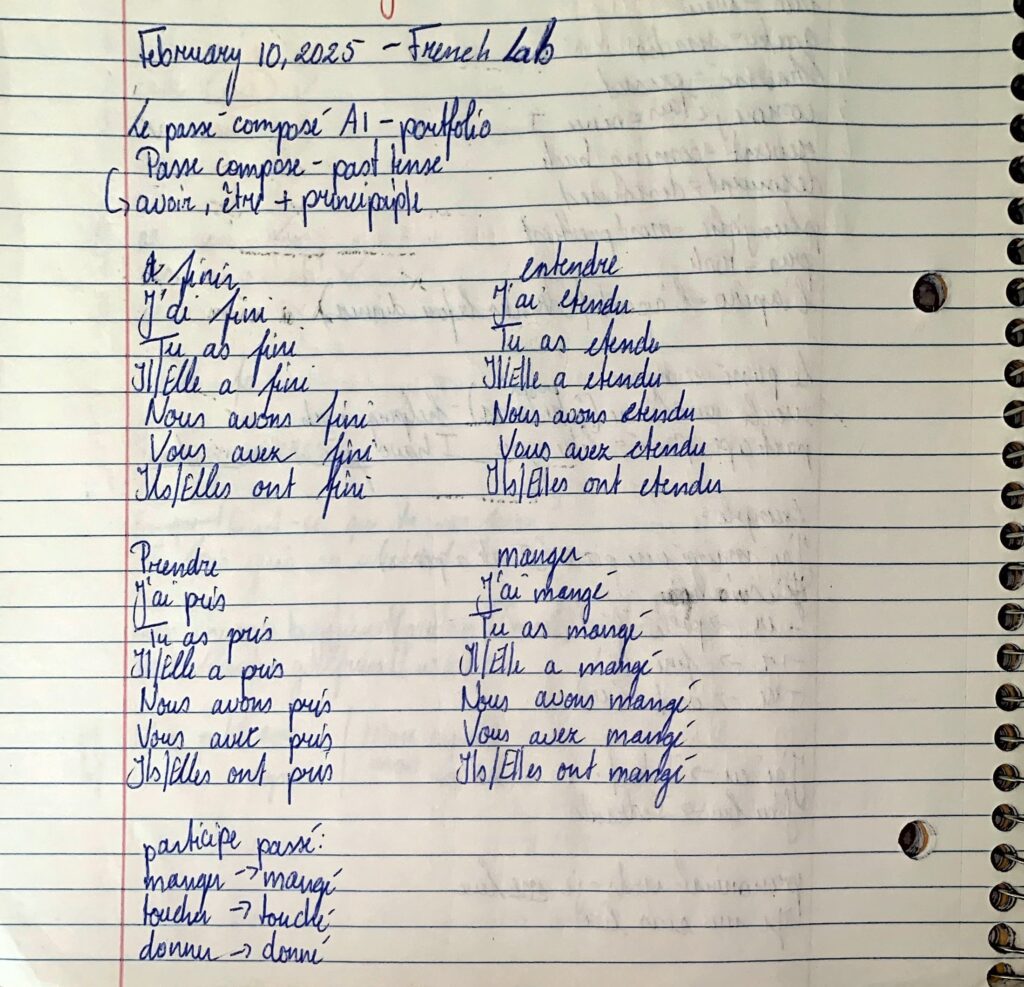 February 10, 2025 - French Lab
Le passé composé A1 - portfolio
Passe compose - past tense
↳ avoir, être + principiple
finir entendre
J'ai fini J'ai etendu
Tu as fini Tu as etendu
Il/Elle a fini Il/Elle a etendu
Nous avons fini Nous avons etendu
Vous avez fini Vous avez etendu
Ils/Elles ont fini Ils/Elles ont etendu
Prendre manger
J'ai pris J'ai mangé
Tu as pris Tu as mangé
Il/Elle a pris Il/Elle a mangé
Nous avons pris Nous avons mangé
Vous avez pris Vous avez mangé
Ils/Elles ont pris Ils/Elles ont mangé
participe passé:
manger → mangé
toucher → touché
donner → donné